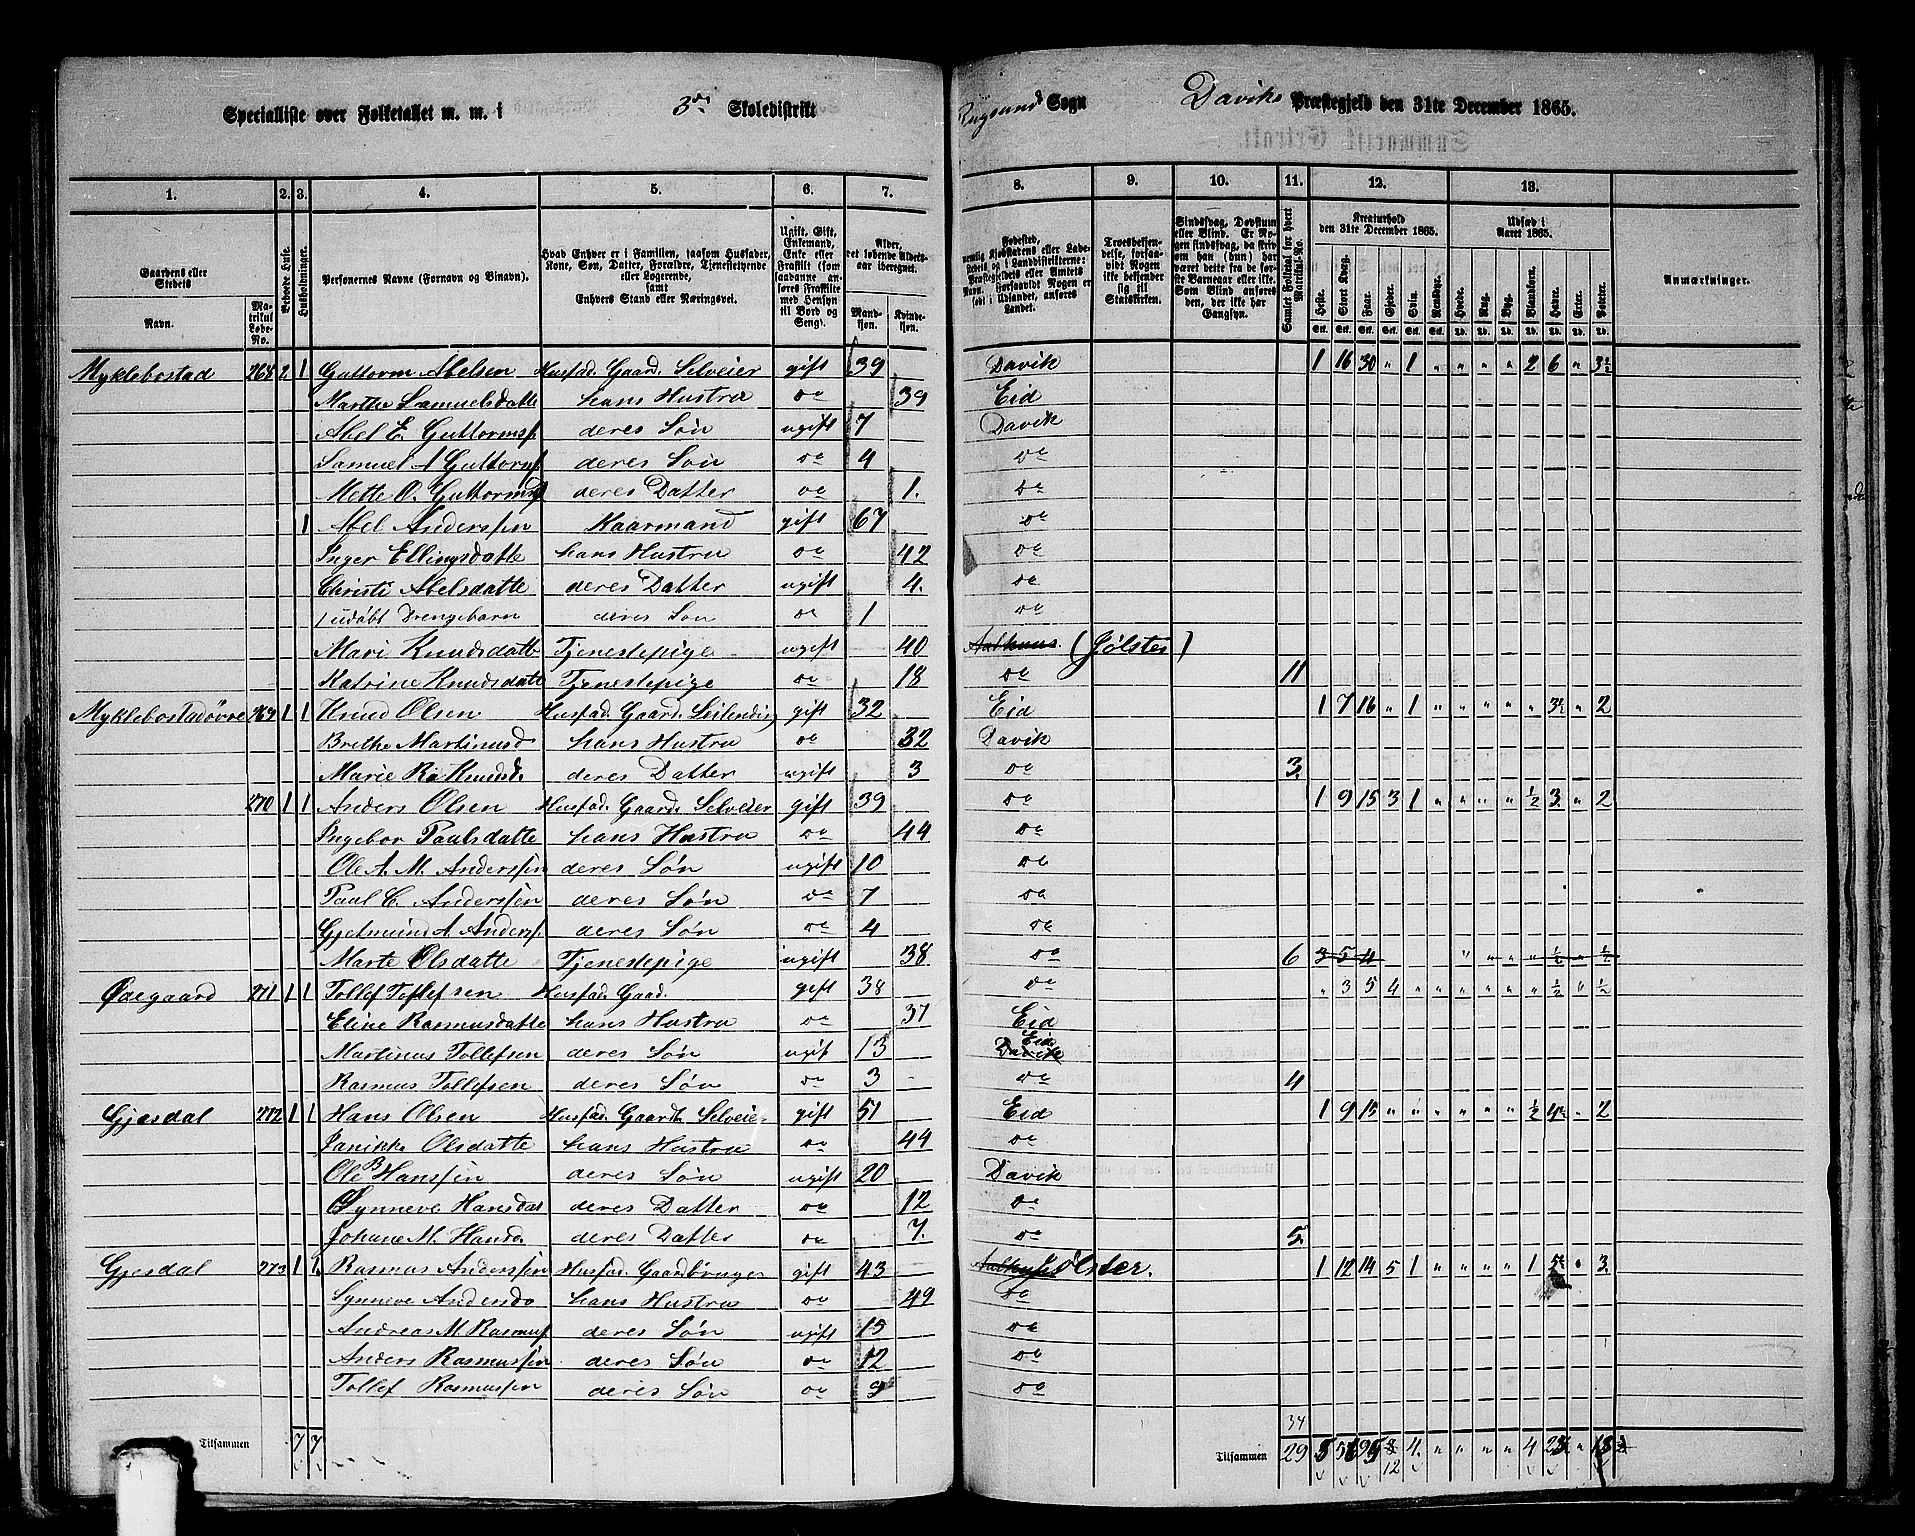 Specialliste over Folketallet m. m. i 3die Skoledistrikt Rugsund Sogn Daviks Præstegjeld den 31te December 1865.
1. 2. 3. 4. 5. 6. 7. 8. 9. 10. 11. 12. 13.
Gaardens eller Stedets Navn. Matrikul Løbe-No. Beboede Huse. Husholdninger. Personernes Navne (Fornavn og Binavn). Hvad Enhver er i Familien, saasom Husfader, Kone, Søn, Datter, Forældre, Tjenestetyende eller Logerende, samt Enhvers Stand eller Næringsvei. Ugift, Gift, Enkemand, Enke eller Fraskilt (som saadanne anføres Fraskilte med Hensyn til Bord og Seng). Alder, det løbende Alders-aar iberegnet. Mandkjøn. Kvindekjøn.
Anmærkninger.
Myklebostad 268 2 1 Guttorm Abelsen Husfad. Gaard. Selveier gift 39 Davik 1 16 30 " 1 " " " " 2 6 "
Marthe Samuelsdatte hans Hustru do 39 Eid
Abel E. Guttormss. deres Søn ugift 7 Davik
Samuel A Guttorms. deres Søn do 4 do
Mette O. Guttormsd deres Datter do 1. do
1 Abel Anderssen Kaarmand gift 67 do
Inger Ellingsdatte hans Hustru do 42 do
Christi Abelsdatte deres Datter ugift 4. do
1 udøbt Drengebarn deres Søn do 1 do
Mari Knudsdatte Tjenestepige ugift 40 Aalhuus. (Jølster)
Katrine Knudsdatte Tjenestepige do 18 do 11
Myklebostadøvre 269 1 1 Knud Olsen Husfad. Gaard. Leilending gift 32 Eid 1 7 16 " 1 " " " " " " 2
Brethe Martinusd hans Hustru do 32 Davik
Marie R. Knuds. deres Datter ugift 3 do 3.
270 1 1 Anders Olsen Husfad. Gaard. Selveier gift 39 do 1 9 15 3 1 " " " " 1/2 3. " 2
Ingebor Paulsdatte hans Hustru do 44 do
Ole A. M. Anderssen deres Søn ugift 10 do
Paul C. Anderssen deres Søn do 7 do
Gjelmund A. Anders. deres Søn do 4 do
Marte Olsdatte Tjenestepige ugift 38 do 6 3 5 4 " " " " 1/2 " 1/2
Ødegaard 271 1 1 Tollef Tollefsen Husfad. Gaad. gift 38 do " 3 5 4 " " " " " " 1/2 " 1/2
Eline Rasmusdatte hans Hustru do 37 Eid
Martinus Tollefsen deres Søn ugift 13 Davik Eid
Rasmus Tollefsen deres Søn do 3 do 4
Gjesdal 272 1 1 Hans Olsen Husfad. Gaardb. Selveier gift 51 Eid 1 9 15 " " " " " " 1/2 " 2
Janikke Olsdatte hans Hustru do 44 do
Ole B Hanssen deres Søn ugift 20 Davik
Synneve Hansdat deres Datter do 12 do
Johane M. Hansd. deres Datter do 7. do 5.
Gjesdal 273 1 1. Rasmus Anderssen Husfad. Gaardbruger gift 43 Aalhus Jølster. 1 12 14 5 1 " " " " 1 " 3.
Synneve Andersda hans Hustru do 49 do
Andreas M. Rasmus. deres Søn ugift 15 do
Anders Rasmussen deres Søn do 12 do
Tollef Rasmussen deres Søn do 9 do
34
Tilsammen 7 7 Tilsammen 29 5 56 95 4. " " " " 4 "
12